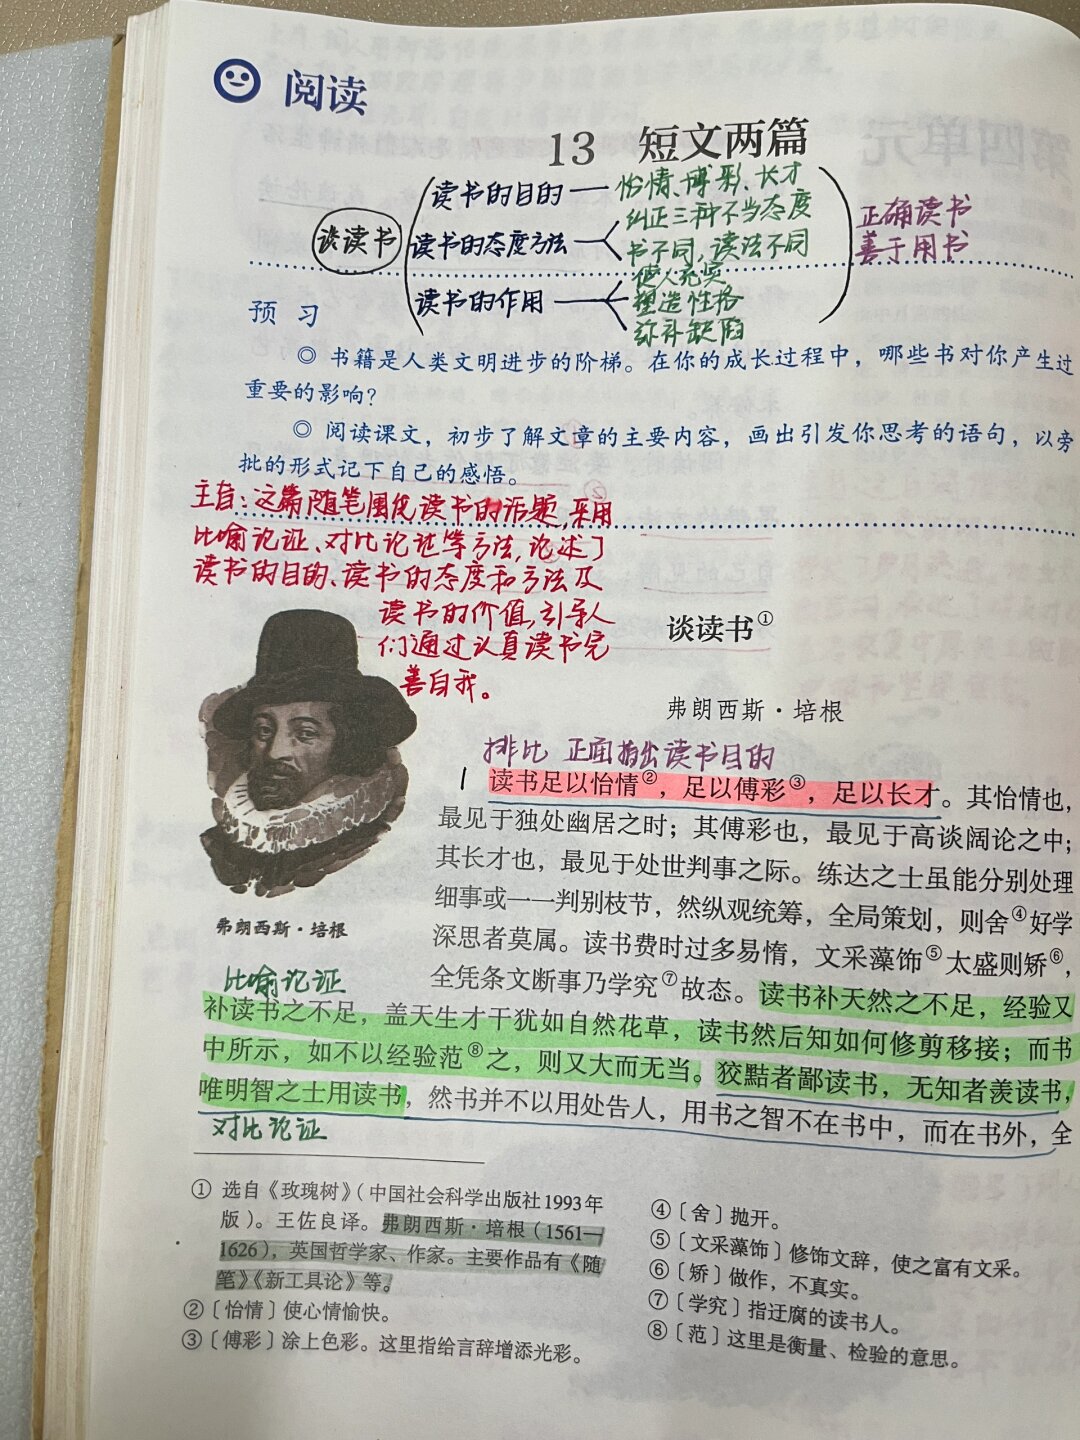 阅读
13 短文两篇
谈读书
读书的目的 — 怡情、博彩、长才
读书的态度方法
纠正三种不当态度
书不同,读法不同
读书的作用
使人充实
塑造性格
弥补缺陷
正确读书
善于用书
预 习
◎ 书籍是人类文明进步的阶梯。在你的成长过程中,哪些书对你产生过
重要的影响?
◎ 阅读课文,初步了解文章的主要内容,画出引发你思考的语句,以旁
批的形式记下自己的感悟。
主旨:这篇随笔围绕读书的话题,采用
比喻论证、对比论证等方法,论述了
读书的目的、读书的态度和方法及
读书的价值,引导人
们通过认真读书完
善自我。
谈读书①
弗朗西斯·培根
排比 正面指出读书目的
1 读书足以怡情②,足以傅彩③,足以长才。其怡情也,
最见于独处幽居之时;其傅彩也,最见于高谈阔论之中;
其长才也,最见于处世判事之际。练达之士虽能分别处理
细事或一一判别枝节,然纵观统筹,全局策划,则舍④好学
深思者莫属。读书费时过多易惰,文采藻饰⑤太盛则矫⑥,
全凭条文断事乃学究⑦故态。读书补天然之不足,经验又
补读书之不足,盖天生才干犹如自然花草,读书然后知如何修剪移接;而书
中所示,如不以经验范⑧之,则又大而无当。狡黠者鄙读书,无知者羡读书,
唯明智之士用读书,然书并不以用处告人,用书之智不在书中,而在书外,全
弗朗西斯·培根
比喻论证
对比论证
① 选自《玫瑰树》(中国社会科学出版社1993年
版)。王佐良译。弗朗西斯·培根(1561—
1626),英国哲学家、作家。主要作品有《随
笔》《新工具论》等。
②〔怡情〕使心情愉快。
③〔傅彩〕涂上色彩。这里指给言辞增添光彩。
④〔舍〕抛开。
⑤〔文采藻饰〕修饰文辞,使之富有文采。
⑥〔矫〕做作,不真实。
⑦〔学究〕指迂腐的读书人。
⑧〔范〕这里是衡量、检验的意思。